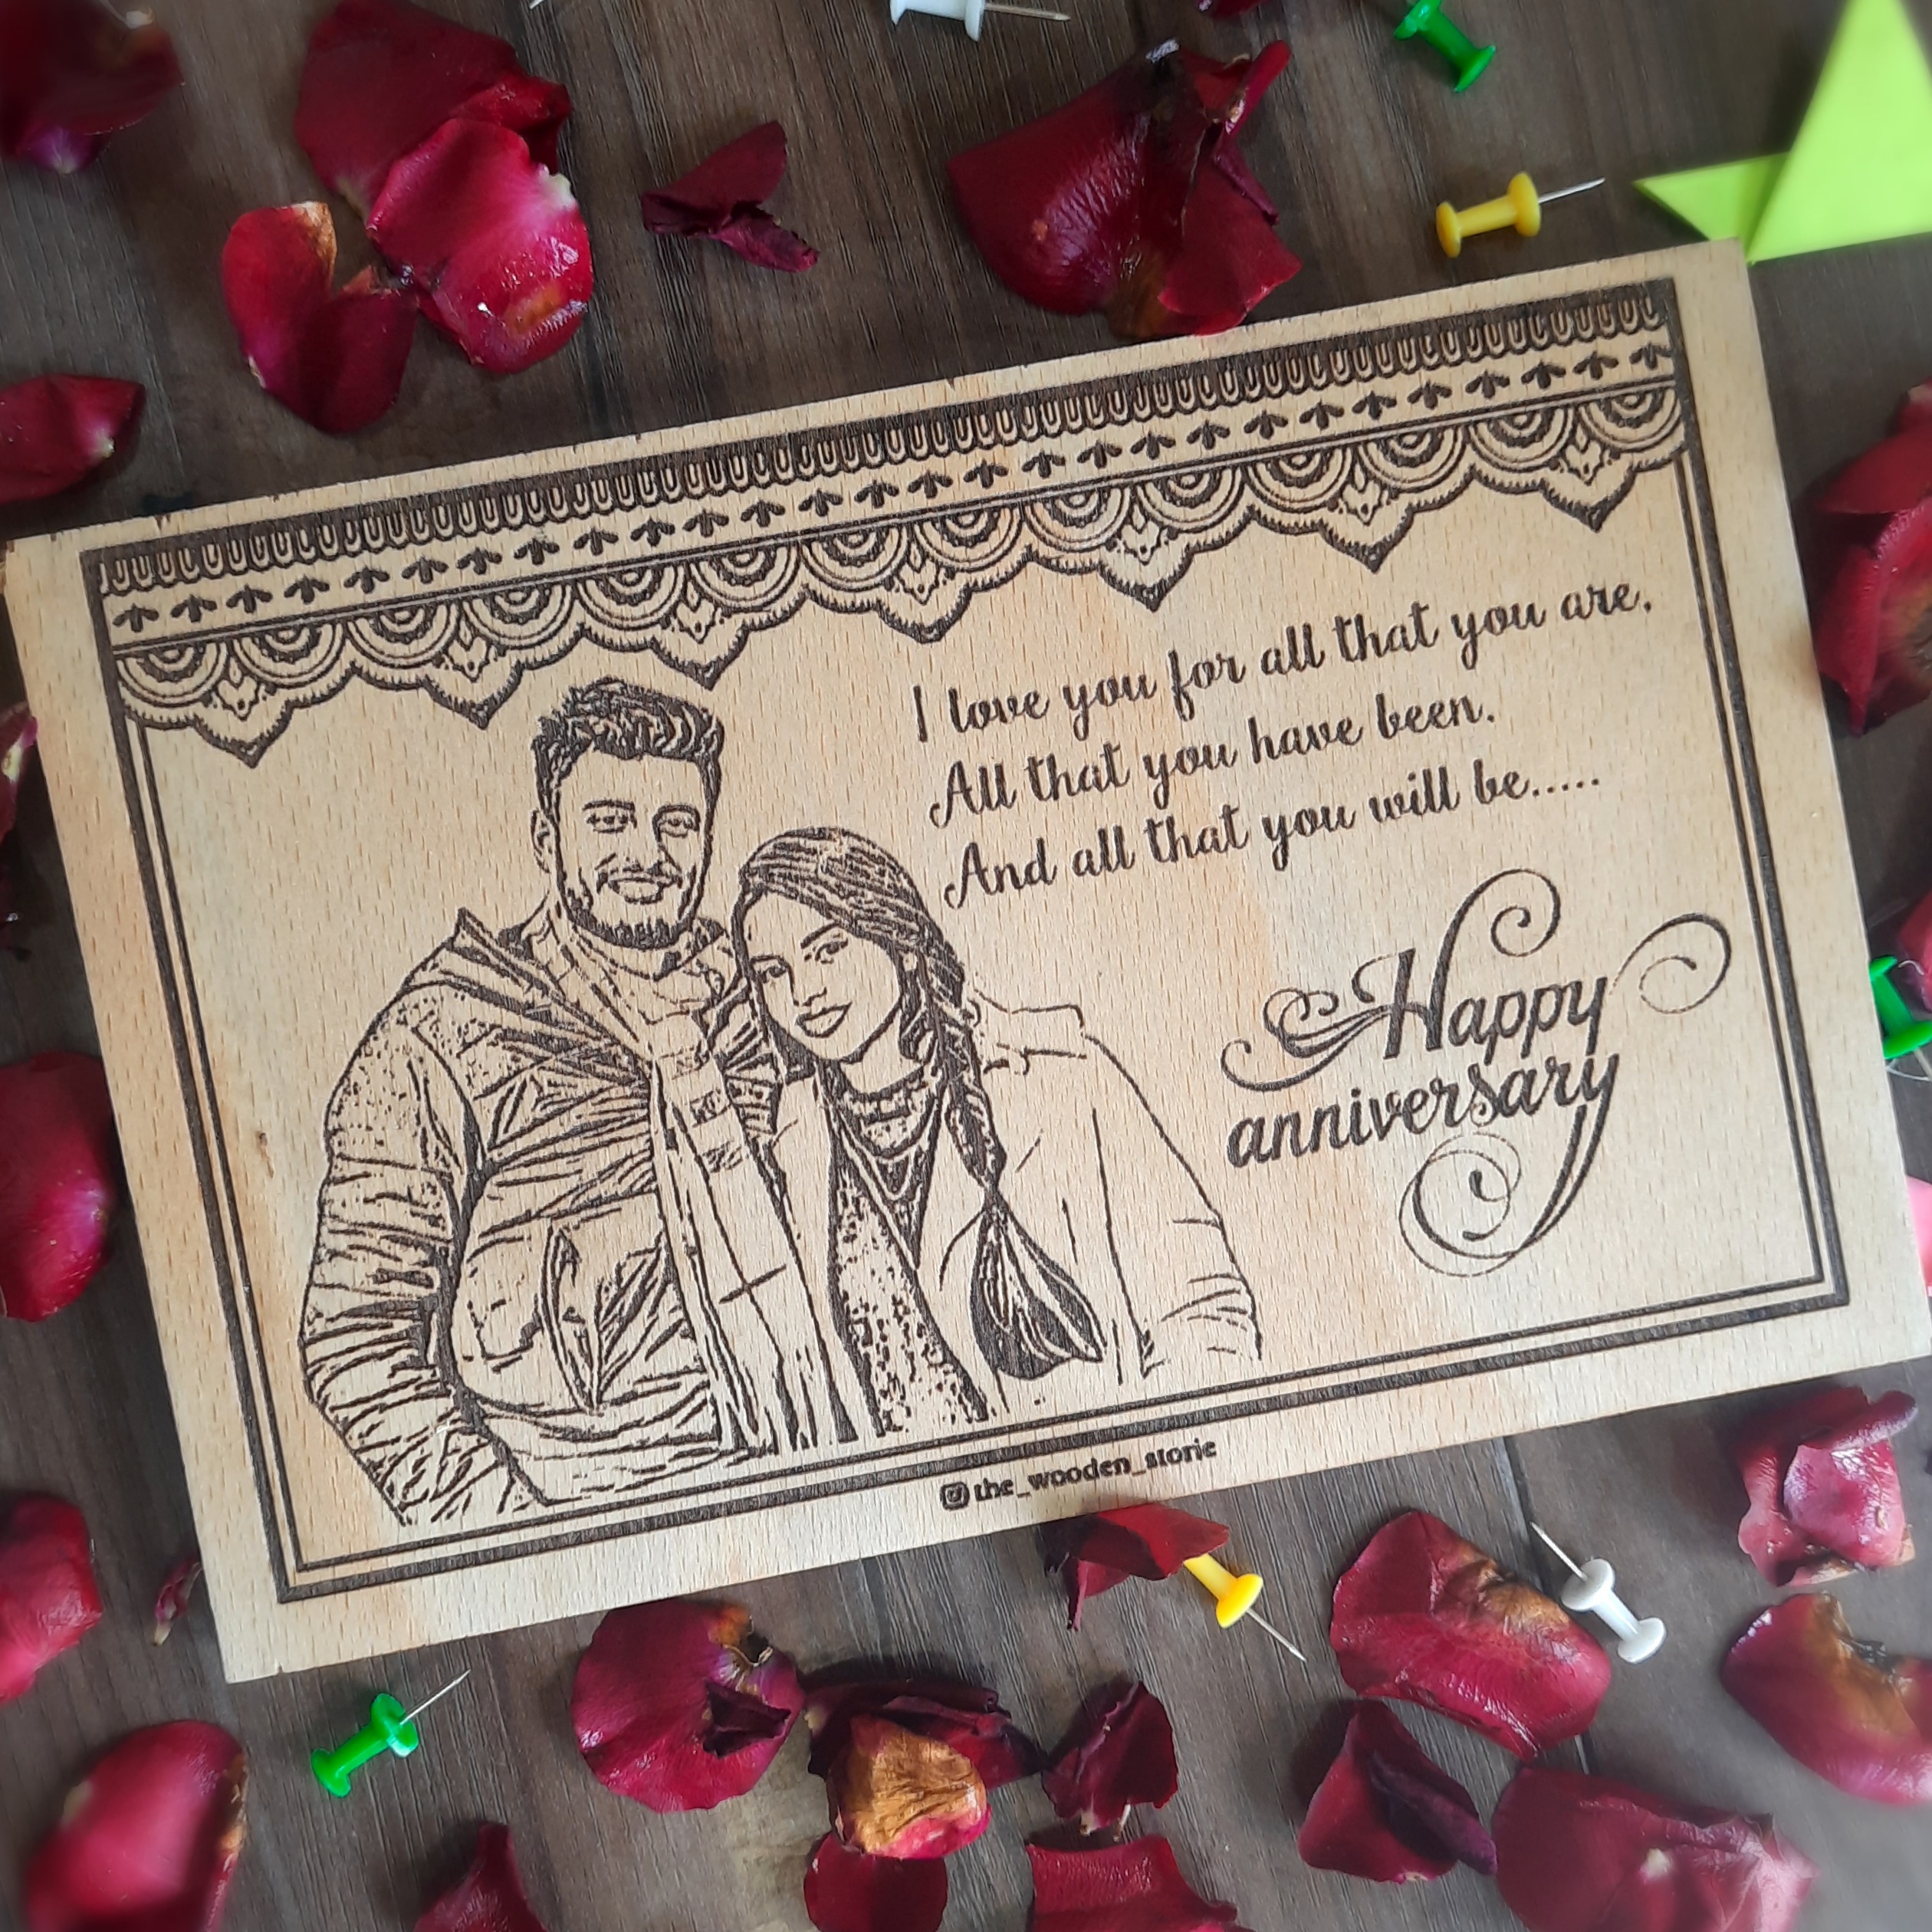 I love you for all that you are.
All that you have been.
And all that you will be.....
Happy
anniversary
the_wooden_storie